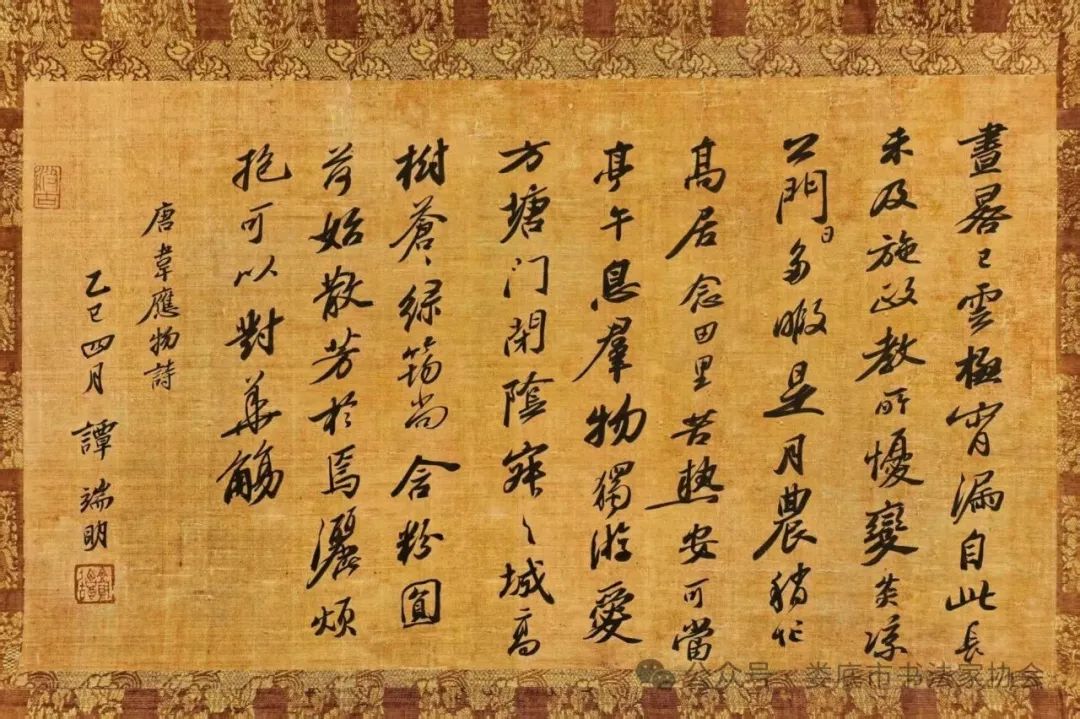 晝晷已雲極宵漏自此長
未及施政教所懮變炎凉
公門日多暇是月農稍忙
高居念田里苦熱安可當
亭午息羣物獨游愛
方塘门閉陰寂々城高
樹蒼々緑筠尚含粉圓
荷始散芳於焉灑煩
抱可以對華觴
唐韋應物詩
乙巳四月 譚端明
公众号 · 娄底市书法家协会